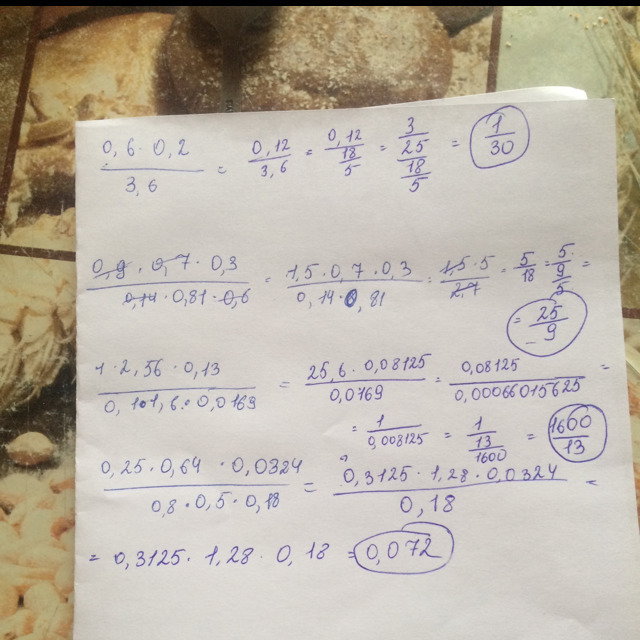 0,6 · 0,2 / 3,6 = 0,12 / 3,6 = 0,12 / 18/5 = 3/25 / 18/5 = 1/30
0,9 · 0,7 · 0,3 / 0,14 · 0,81 · 0,6 = 1,5 · 0,7 · 0,3 / 0,14 · 0,81 = 1,5 · 5 / 2,7 = 5/18 = 5 / 9/5 =
= 25/9
1 · 2,56 · 0,13 / 0,1 · 1,6 · 0,0169 = 25,6 · 0,08125 / 0,0169 = 0,08125 / 0,00066015625 =
= 1 / 0,008125 = 1 / 13/1600 = 1600/13
0,25 · 0,64 · 0,0324 / 0,8 · 0,5 · 0,18 = 0,3125 · 1,28 · 0,0324 / 0,18 =
= 0,3125 · 1,28 · 0,18 = 0,072